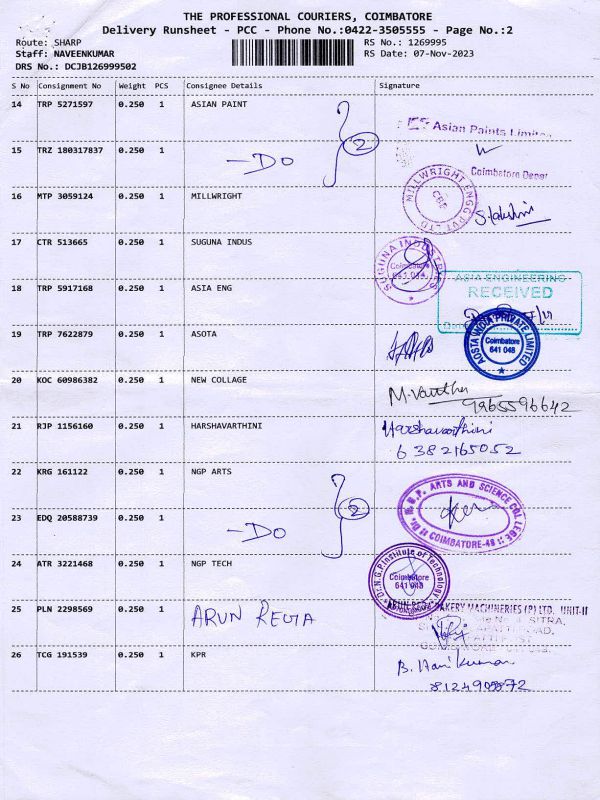 THE PROFESSIONAL COURIERS, COIMBATORE
Delivery Runsheet - PCC - Phone No.:0422-3505555 - Page No.:2
Route: SHARP RS No.: 1269995
Staff: NAVEENKUMAR RS Date: 07-Nov-2023
DRS No.: DCJB126999502
S No Consignment No Weight PCS Consignee Details Signature
14 TRP 5271597 0.250 1 ASIAN PAINT
Asian Paints Limited
15 TRZ 180317837 0.250 1 -DO 2
Coimbatore Depot
16 MTP 3059124 0.250 1 MILLWRIGHT
MILLWRIGHT ENGG PVT LTD CBE
17 CTR 513665 0.250 1 SUGUNA INDUS
SUGUNA INDUSTRIES Coimbatore 641 014
18 TRP 5917168 0.250 1 ASIA ENG
ASIA ENGINEERING
RECEIVED
19 TRP 7622879 0.250 1 ASOTA
AOSTA INDIA PRIVATE LIMITED Coimbatore 641 048
20 KOC 60986382 0.250 1 NEW COLLAGE
9965596642
21 RJP 1156160 0.250 1 HARSHAVARTHINI
Harshavarthini
6382165052
22 KRG 161122 0.250 1 NGP ARTS
Dr. N.G.P. ARTS AND SCIENCE COLLEGE COIMBATORE-48
23 EDQ 20588739 0.250 1 -DO 2
24 ATR 3221468 0.250 1 NGP TECH
Dr.N.G.P.Institute of Technology Coimbatore 641 048
25 PLN 2298569 0.250 1 ARUN REUTA
BAKERY MACHINERIES (P) LTD., UNIT-II
26 TCG 191539 0.250 1 KPR
B. Hari Kumaran
8124909872